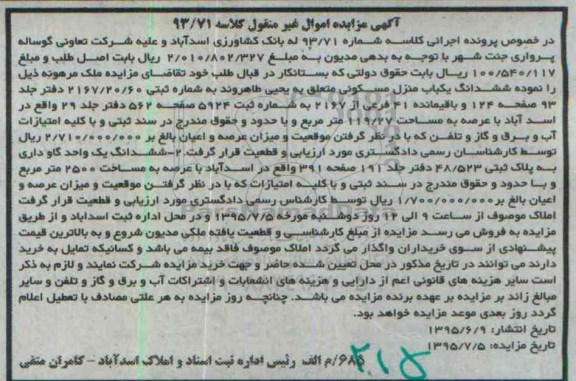 آگهی مزایده اموال غیر منقول کلاسه ۹۳/۷۱
در خصوص پرونده اجرائی کلاسه شماره ۹۳/۷۱ له بانک کشاورزی اسدآباد و علیه شرکت تعاونی گوساله
پرواری جنت شهر با توجه به بدهی مدیون به مبلغ ۲/۰۱۰/۸۰۲/۳۲۷ ریال بابت اصل طلب و مبلغ
۱۰۰/۵۴۰/۱۱۷ ریال بابت حقوق دولتی که بستانکار در قبال طلب خود تقاضای مزایده ملک مرهونه ذیل
را نموده ششدانگ یکباب منزل مسکونی متعلق به یحیی طاهروند به شماره ثبتی ۲۱۶۷/۲۰/۶۰ دفتر جلد
۹۳ صفحه ۱۲۴ و باقیمانده ۴۱ فرعی از ۲۱۶۷ به شماره ثبت ۵۹۲۴ صفحه ۵۶۲ دفتر جلد ۲۹ واقع در
اسد آباد با عرصه به مساحت ۲۱۹/۲۷ متر مربع و با حدود و حقوق مندرج در سند ثبتی و با کلیه امتیازات
آب و برق و گاز و تلفن که با در نظر گرفتن موقعیت و میزان عرصه و اعیان بالغ بر ۲/۷۱۰/۰۰۰/۰۰۰ ریال
توسط کارشناسان رسمی دادگستری مورد ارزیابی و قطعیت قرار گرفت ۲-ششدانگ یک واحد گاو داری
به پلاک ثبتی ۴۸/۵۲۳ دفتر جلد ۱۹۱ صفحه ۳۹۱ واقع در اسدآباد با عرصه به مساحت ۲۵۰۰ متر مربع
و با حدود و حقوق مندرج در سند ثبتی و با کلیه امتیازات که با در نظر گرفتن موقعیت و میزان عرصه و
اعیان بالغ بر ۱/۷۰۰/۰۰۰/۰۰۰ ریال توسط کارشناس رسمی دادگستری مورد ارزیابی و قطعیت قرار گرفت
املاک موصوف از ساعت ۹ الی ۱۲ روز دوشنبه مورخه ۱۳۹۵/۷/۵ و در محل اداره ثبت اسدآباد و از طریق
مزایده به فروش می رسد مزایده از مبلغ کارشناسی و قطعیت یافته ملکی مدیون شروع و به بالاترین قیمت
پیشنهادی از سوی خریداران واگذار می گردد املاک موصوف فاقد بیمه می باشد و کسانیکه تمایل به خرید
دارند می توانند در تاریخ مذکور در محل تعیین شده حاضر و جهت خرید مزایده شرکت نمایند و لازم به ذکر
است سایر هزینه های قانونی اعم از دارایی و هزینه های انشعابات و اشتراکات آب و برق و گاز و تلفن و سایر
مبالغ زائد بر مزایده بر عهده برنده مزایده می باشد. چنانچه روز مزایده به هر علتی مصادف با تعطیل اعلام
گردد روز بعدی موعد مزایده خواهد بود.
تاریخ انتشار: ۱۳۹۵/۶/۹
تاریخ مزایده: ۱۳۹۵/۷/۵
۶۸۵/م الف رئیس اداره ثبت اسناد و املاک اسدآباد - کامران متقی